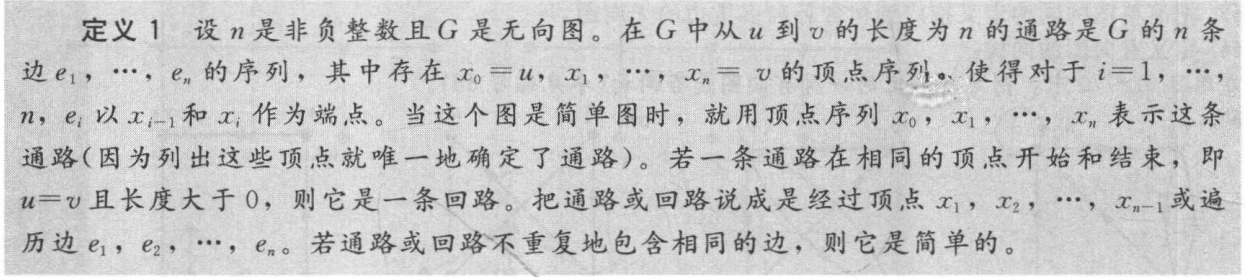 定义 1 设 n 是非负整数且 G 是无向图。在 G 中从 u 到 v 的长度为 n 的通路是 G 的 n 条
边 e₁，…，eₙ 的序列，其中存在 x₀＝u，x₁，…，xₙ＝ v 的顶点序列、使得对于 i＝1，…，
n，eᵢ 以 xᵢ₋₁ 和 xᵢ 作为端点。当这个图是简单图时，就用顶点序列 x₀，x₁，…，xₙ 表示这条
通路(因为列出这些顶点就唯一地确定了通路)。若一条通路在相同的顶点开始和结束，即
u＝v 且长度大于 0，则它是一条回路。把通路或回路说成是经过顶点 x₁，x₂，…，xₙ₋₁ 或遍
历边 e₁，e₂，…，eₙ。若通路或回路不重复地包含相同的边，则它是简单的。